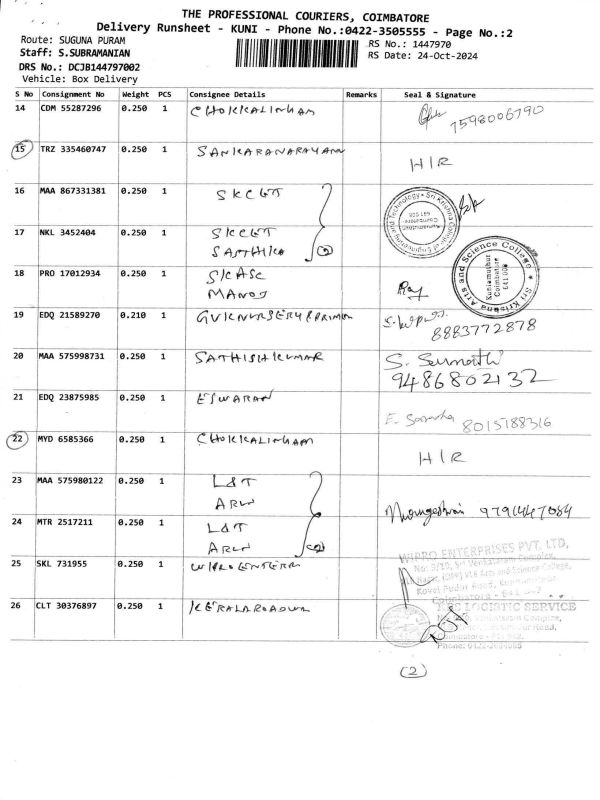 THE PROFESSIONAL COURIERS, COIMBATORE
Delivery Runsheet - KUNI - Phone No.:0422-3505555 - Page No.:2
Route: SUGUNA PURAM
RS No.: 1447970
Staff: S.SUBRAMANIAN
RS Date: 24-Oct-2024
DRS No.: DCJB144797002
Vehicle: Box Delivery
S No Consignment No Weight PCS Consignee Details Remarks Seal & Signature
14 CDM 55287296 0.250 1 CHOKKALINHAM
7598006790
15 TRZ 335460747 0.250 1 SANKARANARAYANN
H/R
16 MAA 867331381 0.250 1 SKCET
17 NKL 3452404 0.250 1 SKCET
SASTHIKA (2)
Sri Krishna College of Engineering and Technology
Kuniamuthur
Coimbatore
641 008
18 PRO 17012934 0.250 1 SKASC
MANOJ
Sri Krishna Arts and Science College
Kuniamuthur
Coimbatore
641 008
19 EDQ 21589270 0.210 1
8883772878
20 MAA 575998731 0.250 1 SATHISHKUMAR
S. Sumathi
9486802132
21 EDQ 23875985 0.250 1 ESWARAN
8015188316
22 MYD 6585366 0.250 1 CHOKKALINHAM
H/R
23 MAA 575980122 0.250 1 L&T
ARUN
24 MTR 2517211 0.250 1 L&T
ARUN (2)
9791447084
25 SKL 731955 0.250 1 WIPRO ENTERR
WIPRO ENTERPRISES PVT. LTD,
26 CLT 30376897 0.250 1 KERALAROADWA
KRS LOGISTIC SERVICE
(2)